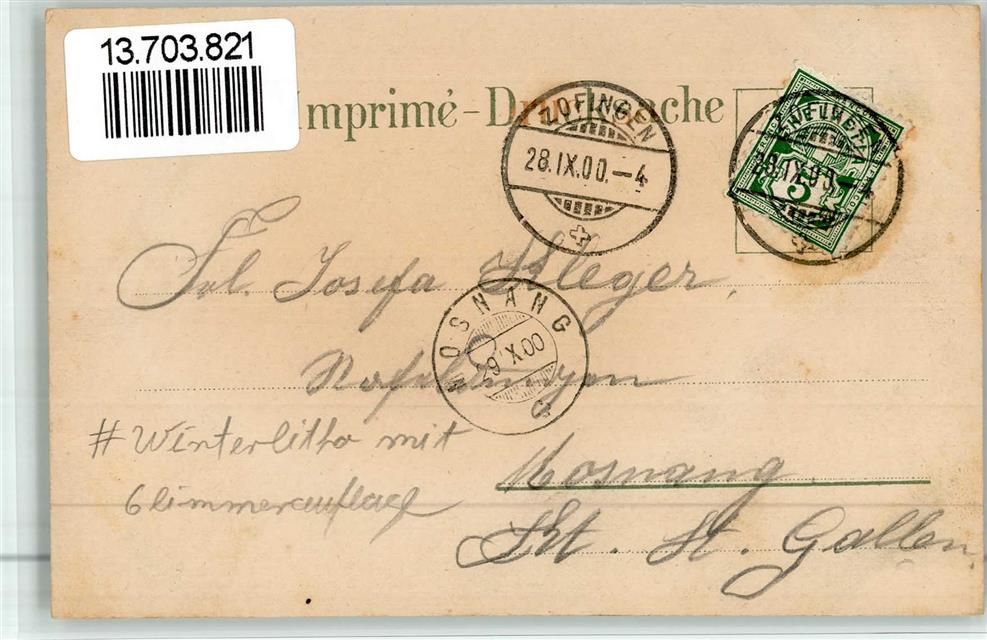 13.703.821
Imprimé-Drucksache
ZOFINGEN
28.IX.00.-4
ZOFINGEN
28.IX.00.-4
5
Frl. Josefa Kleger,
MOSNANG
29.IX.00
# Winterlitho mit
Glimmerauflage
Mosnang
Kt. St. Gallen